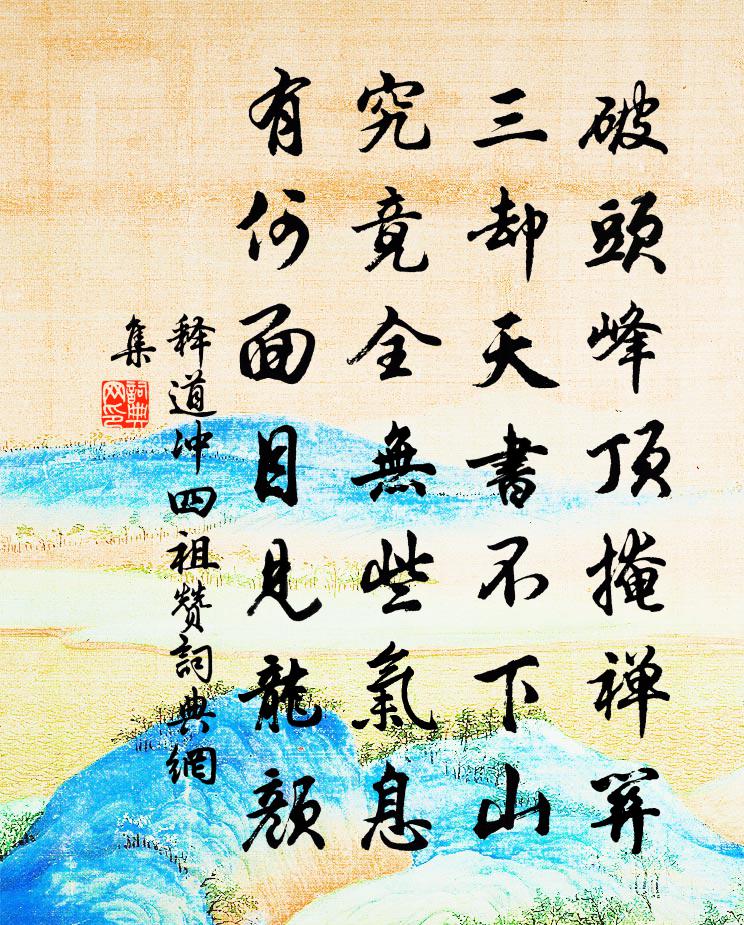 破頭峰頂掩禅關
三却天書不下山
究竟全無些氣息
有何面目見龍顏
释道冲四祖赞詞典網
集
詞典
网印